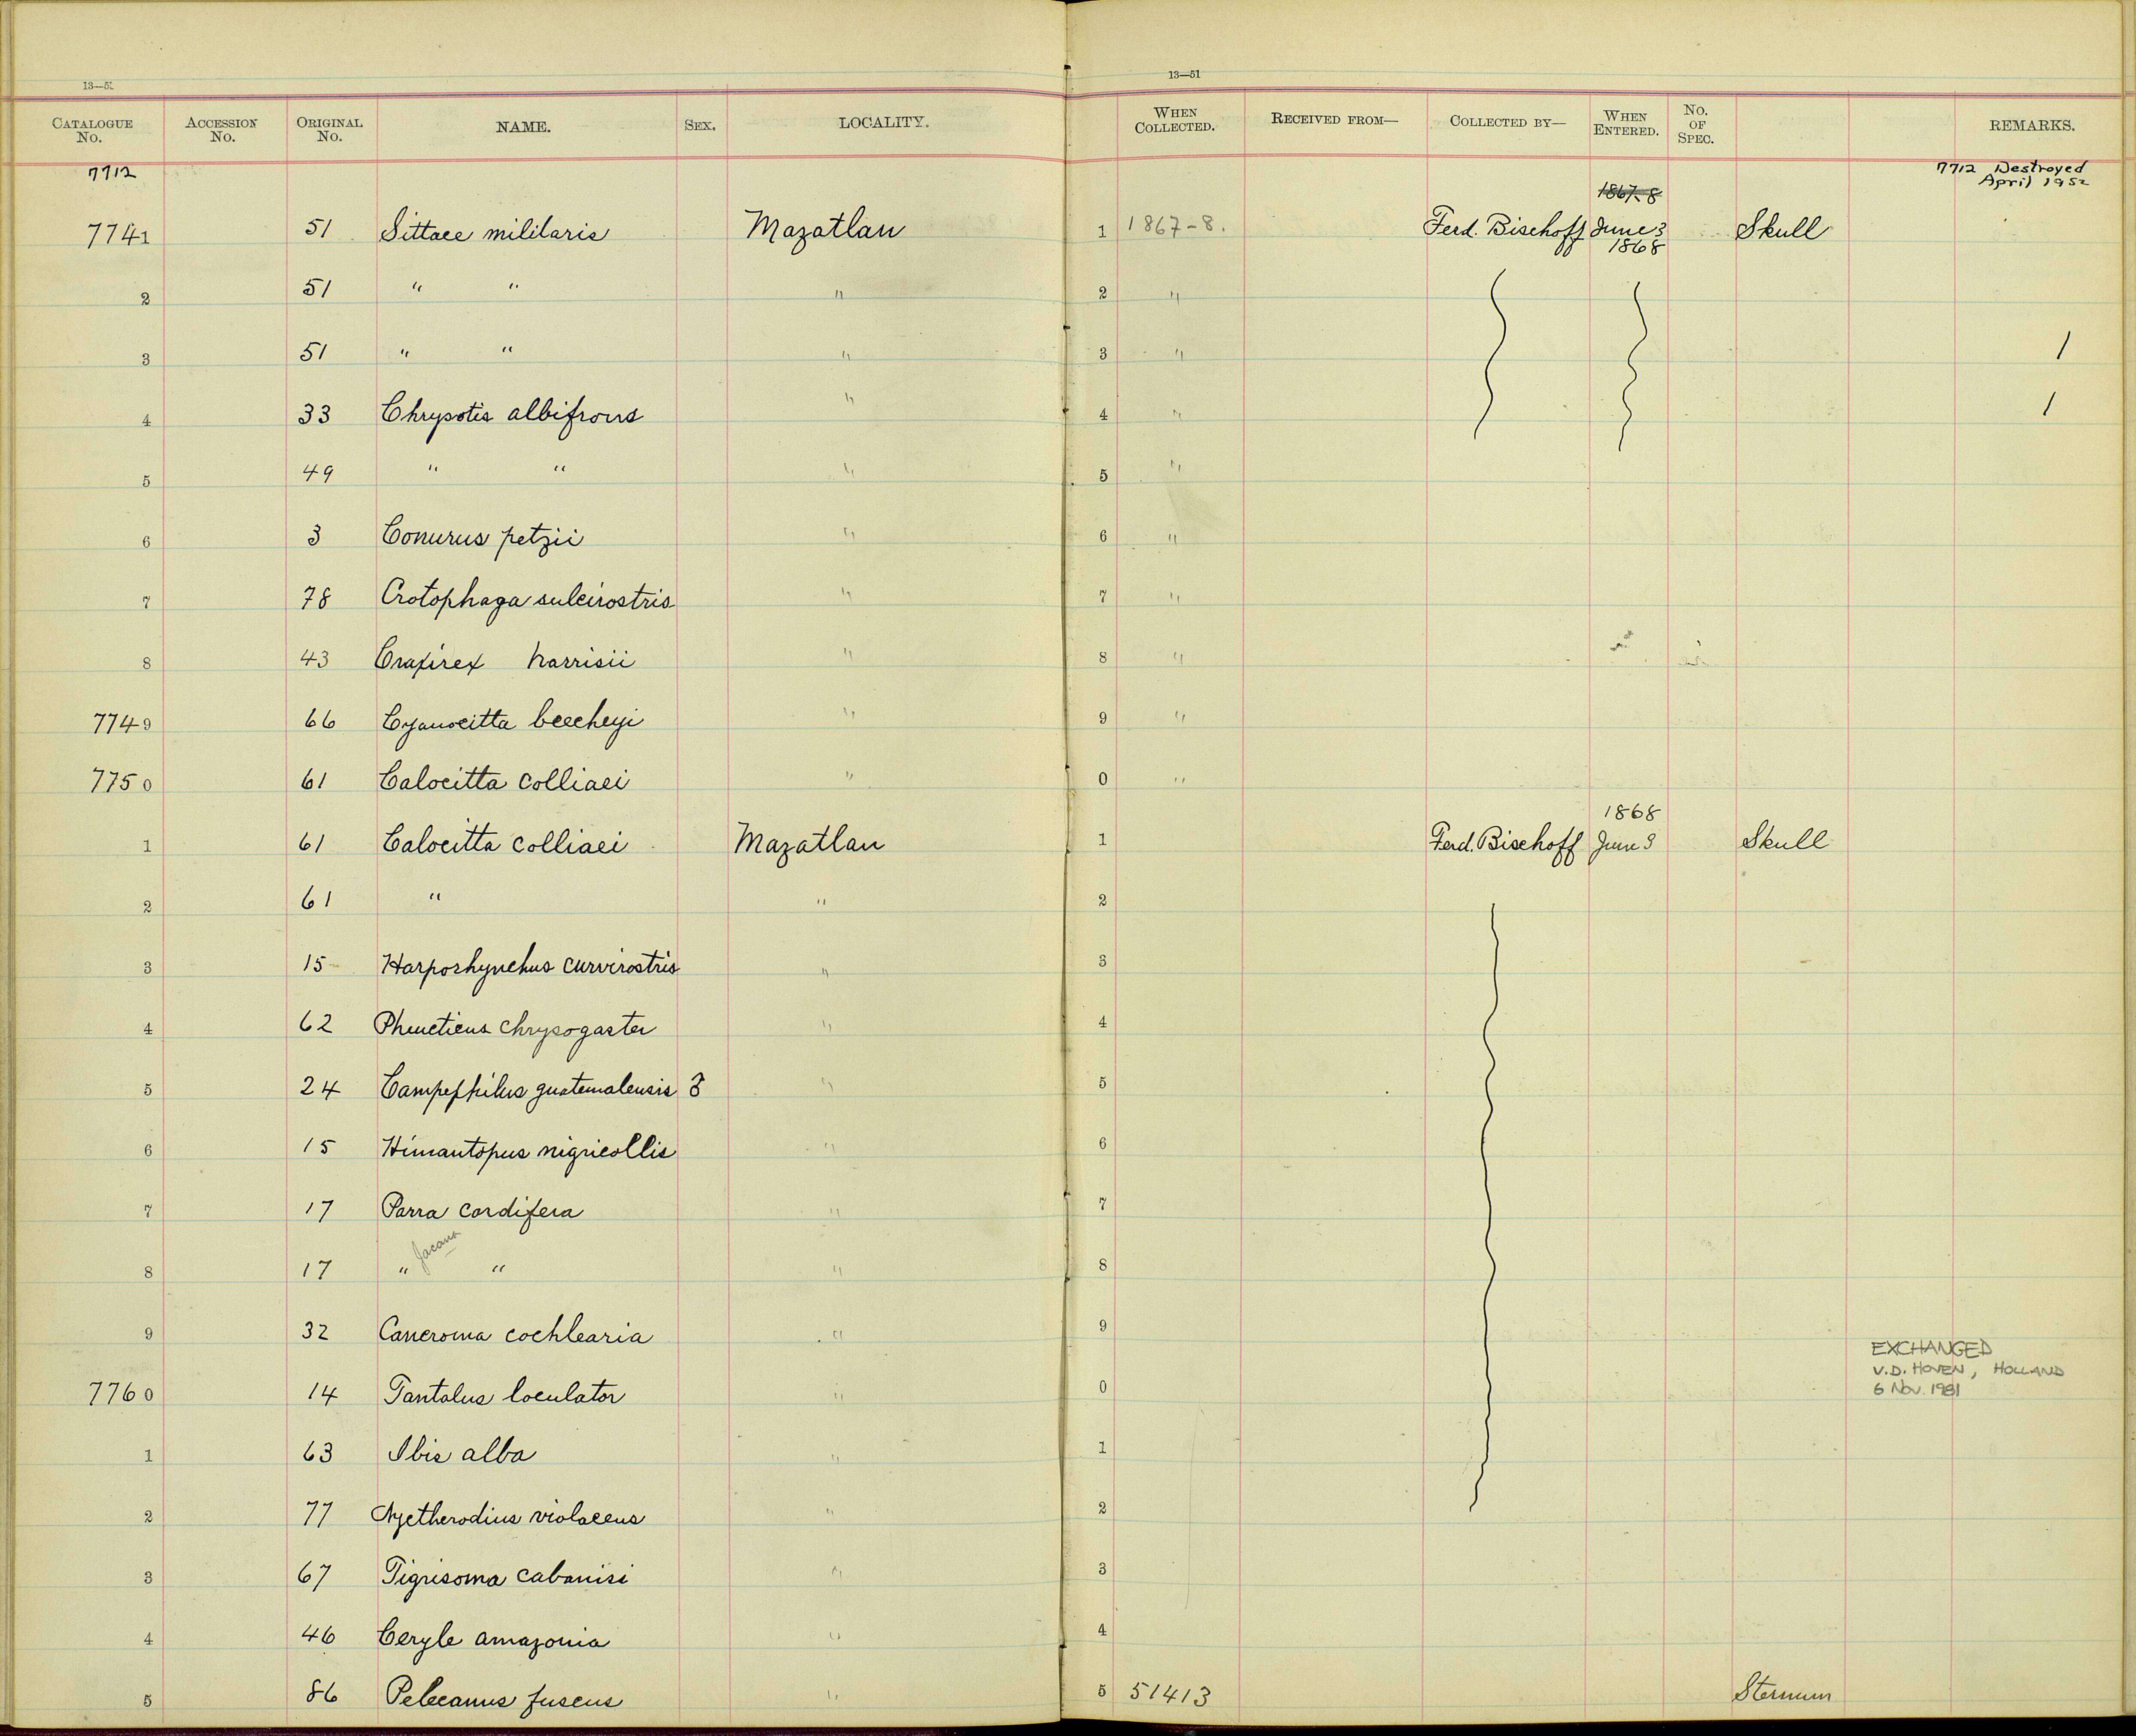 13—51
13—51
CATALOGUE No. ACCESSION No. ORIGINAL No. NAME. SEX. LOCALITY. WHEN COLLECTED. RECEIVED FROM— COLLECTED BY— WHEN ENTERED. No. OF SPEC. REMARKS.
7712 7712 Destroyed
April 1952
1867-8
7741 51 Sittace militaris Mazatlan 1 1867-8. Ferd. Bischoff June 3 Skull
1868
2 51 " " " 2 "
3 51 " " " 3 " 1
4 33 Chrysotis albifrons " 4 " 1
5 49 " " " 5 "
6 3 Conurus petzii " 6 "
7 78 Crotophaga sulcirostris " 7 "
8 43 Craxirex harrisii " 8 "
7749 66 Cyanocitta beecheyi " 9 "
7750 61 Calocitta colliaei " 0 "
1868
1 61 Calocitta colliaei Mazatlan 1 Ferd. Bischoff June 3 Skull
2 61 " " 2
3 15 Harporhynchus curvirostris " 3
4 62 Pheucticus chrysogaster " 4
5 24 Campephilus guatemalensis " 5
6 15 Himantopus nigricollis " 6
7 17 Parra cordifera " 7
Jacana
8 17 " " " 8
9 32 Cancroma cochlearia " 9
EXCHANGED
V.D. HOVEN, HOLLAND
6 NOV. 1981
7760 14 Tantalus loculator " 0
1 63 Ibis alba " 1
2 77 Nyctherodius violaceus " 2
3 67 Tigrisoma cabanisi " 3
4 46 Ceryle amazonia " 4
5 86 Pelecanus fuscus " 5 51413 Sternum